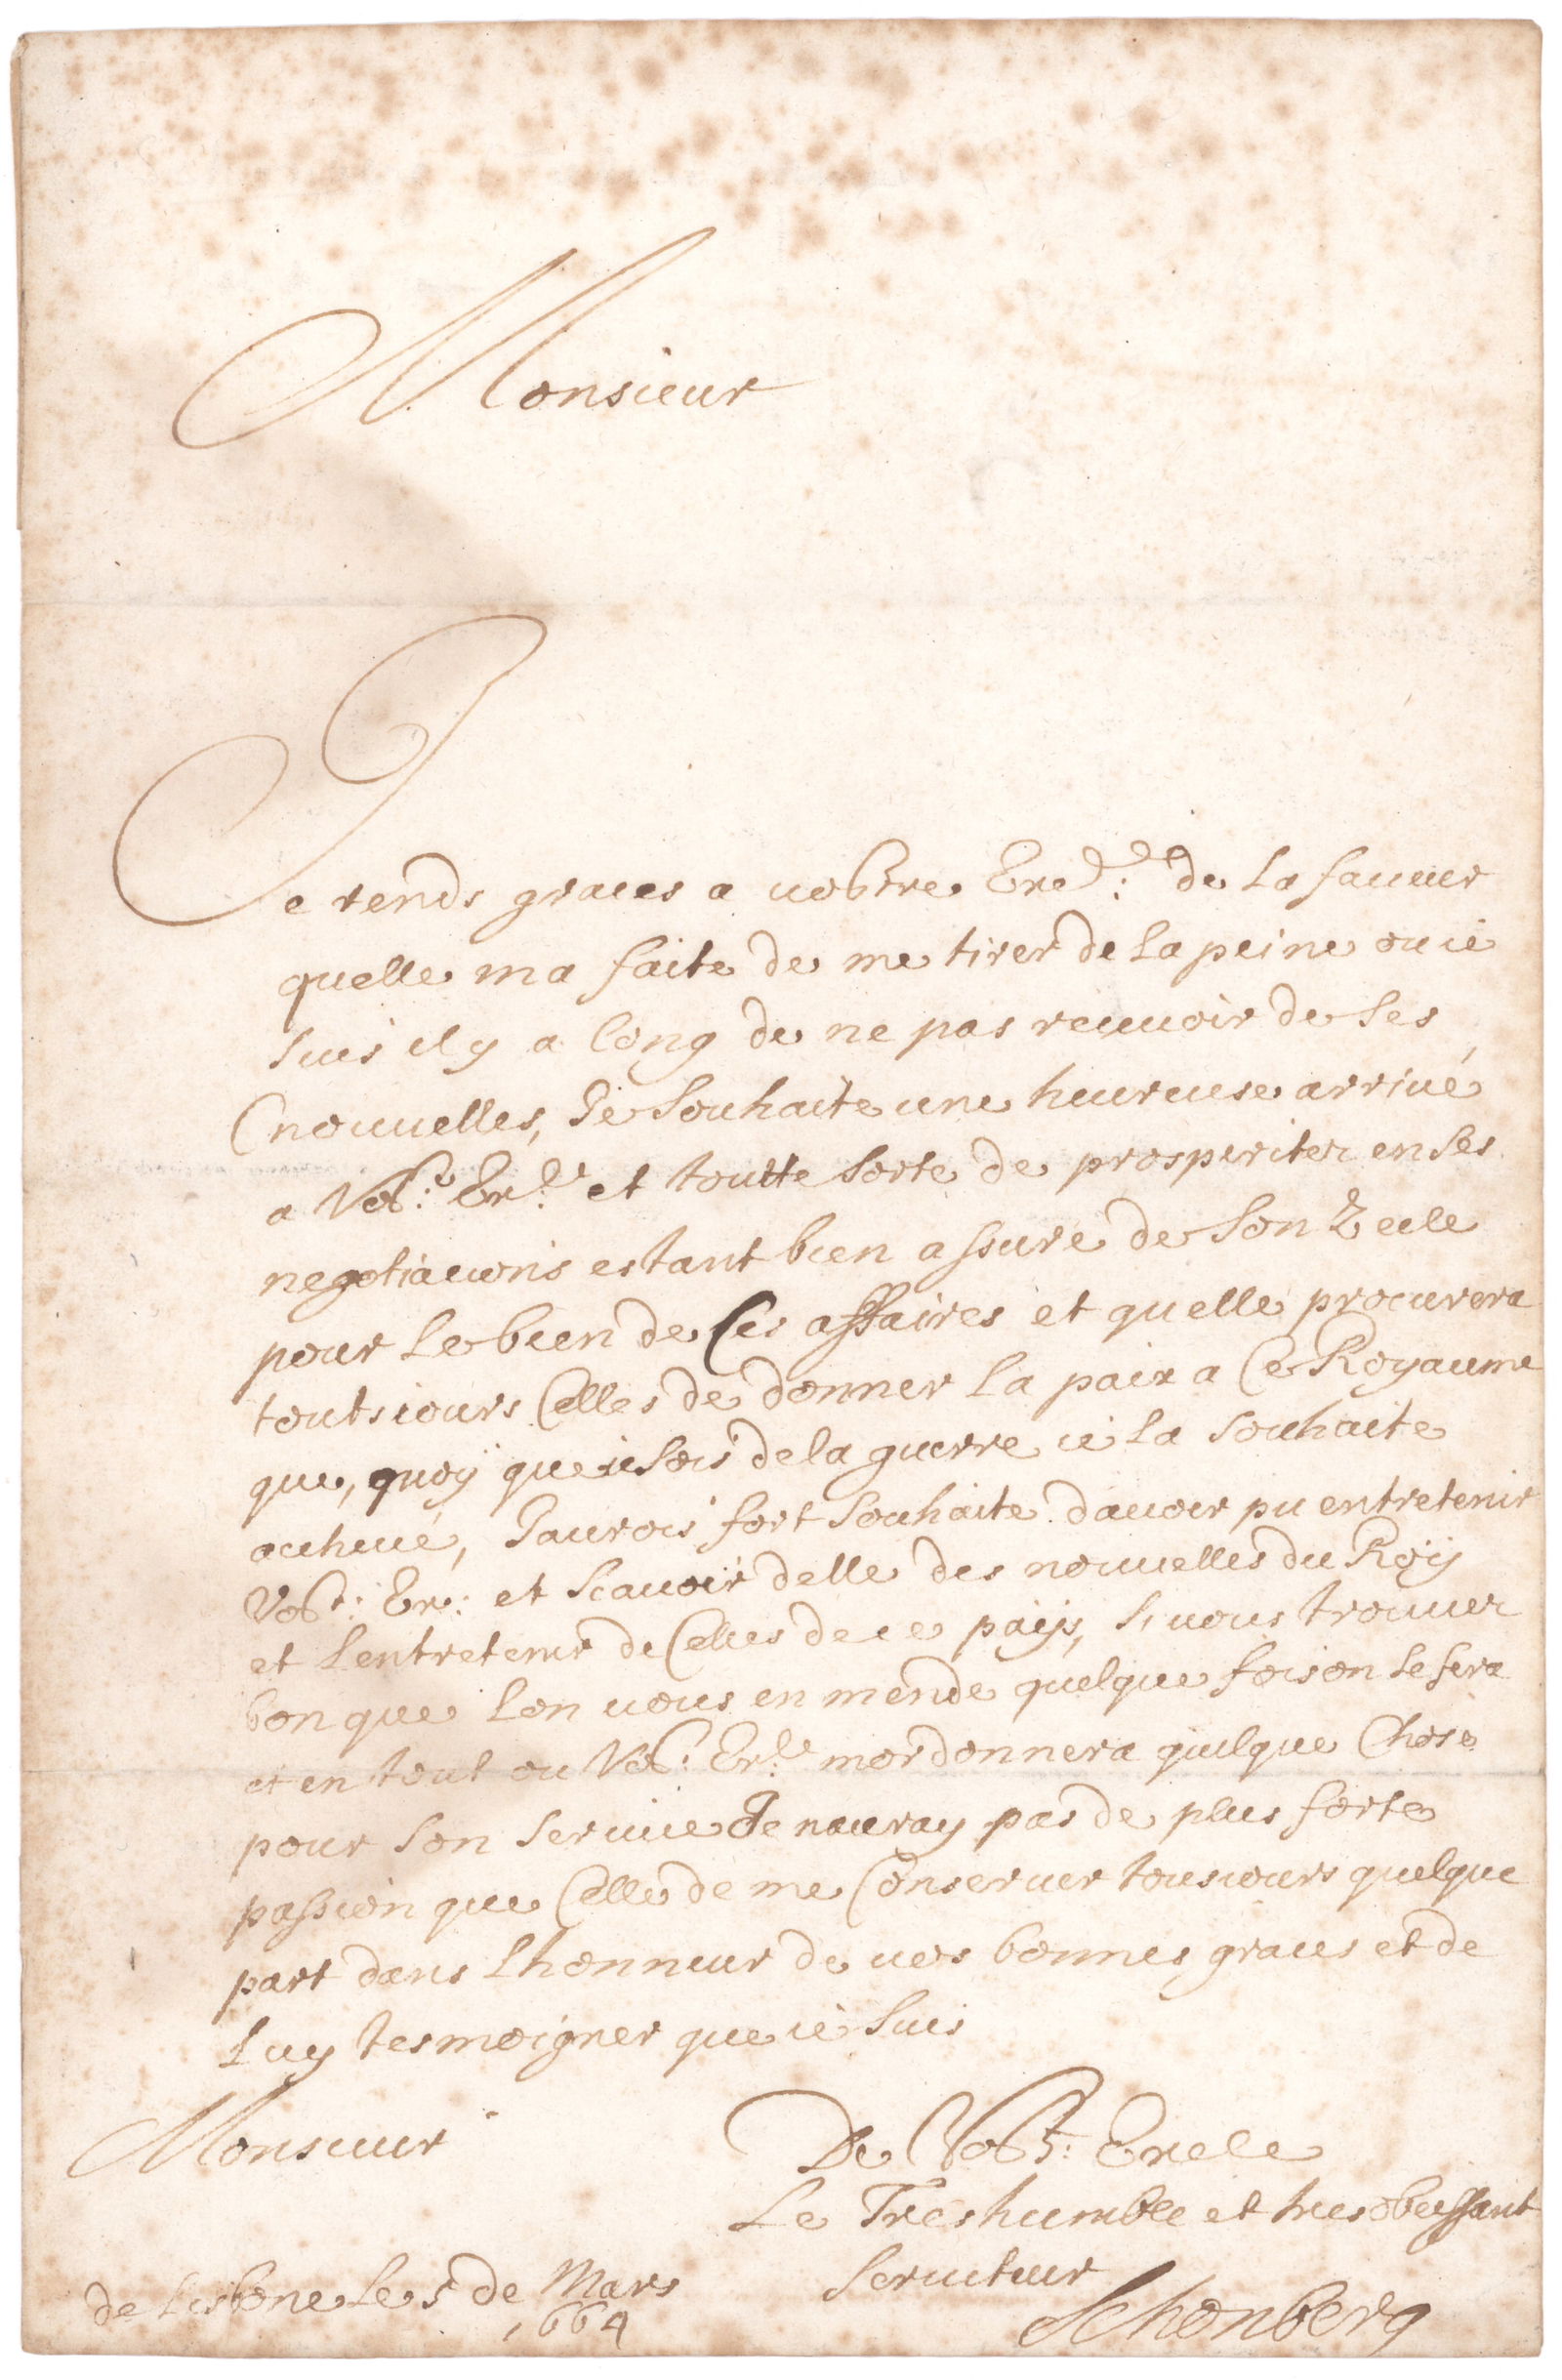 Monsieur
Je rends graces a vostre Exce: de la faueur
quelle ma faite de me tirer de la peine ou ie
suis il y a long de ne pas receuoir de ses
nouuelles, Je souhaite une heureuse arriué
a Vost: Exle et toutte sorte de prosperiter en ses
negotiacions estant bien assuré de son Zeele
pour le bien de Ces affaires et quelle procurera
toutsiours Celles de donner la paix a Ce Royaume
que, quoy que ie sois de la guerre ie la souhaite
acheué, Jaurois fort souhaite dauoir pu entretenir
Vost: Ex: et scauoir delle des nouuelles du Roÿ
et lentretenir de Celles de ce païjs, si uous trouuer
bon que lon uous en mende quelque fois on le fera
et en tout ou Vost: Exle mordonnera quelque Chose
pour son seruice Je nauray pas de plus forte
passion que Celle de me Conseruer tousiours quelque
part dans lhonneur de uos bonnes graces et de
luy tesmoigner que ie suis
Monsieur
De Vost: Excle
Le Treshumble et tres obeissant
seruiteur
de Lisbone le 5 de Mars
1664
Schonberg